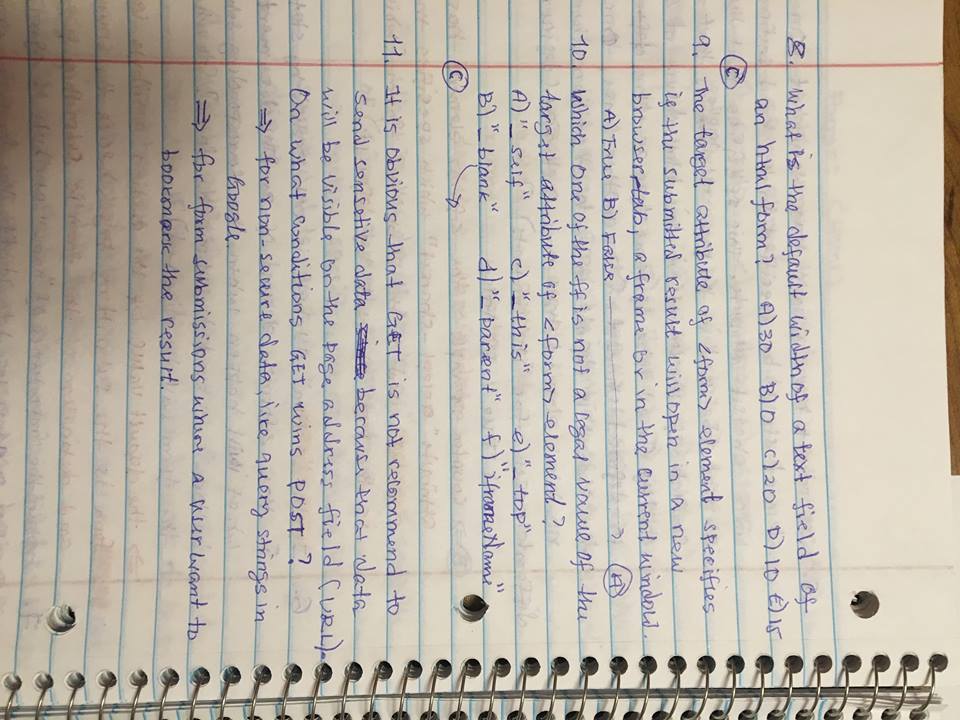 8. What is the default width of a text field of
an html form? A) 30 B) 0 C) 20 D) 10 E) 15
C
9. The target attribute of <form> element specifies
if the submitted result will open in a new
browser tab, a frame or in the current window.
A) True B) False A
10. Which one of the ff is not a legal value of the
target attribute of <form> element?
A) "_self" c) "_this" e) "_top"
B) "_blank" d) "_parent" f) "iframeName"
C
11. It is obvious that GET is not recommend to
send sensetive data because that data
will be visible on the page address field (URL).
On what conditions GET wins POST?
⇒ for non-secure data, like query strings in
Google.
⇒ for form submissions where a user want to
bookmark the result.